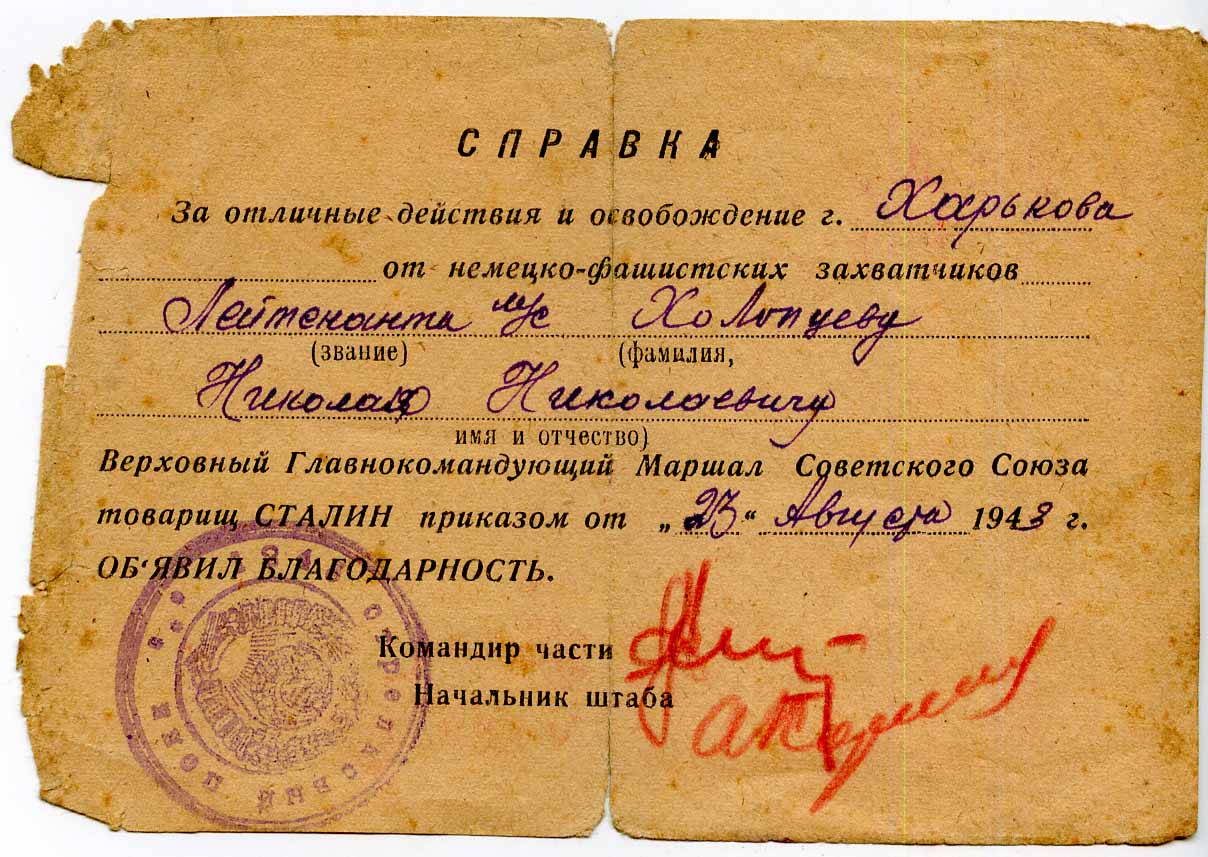 СПРАВКА
За отличные действия и освобождение г. Харькова
от немецко-фашистских захватчиков
Лейтенанта м/с Холопцеву
(звание) (фамилия,
Николаю Николаевичу
имя и отчество)
Верховный Главнокомандующий Маршал Советского Союза
товарищ СТАЛИН приказом от „23“ Августа 1943 г.
ОБ‘ЯВИЛ БЛАГОДАРНОСТЬ.
Командир части
Начальник штаба
стрелковый полк